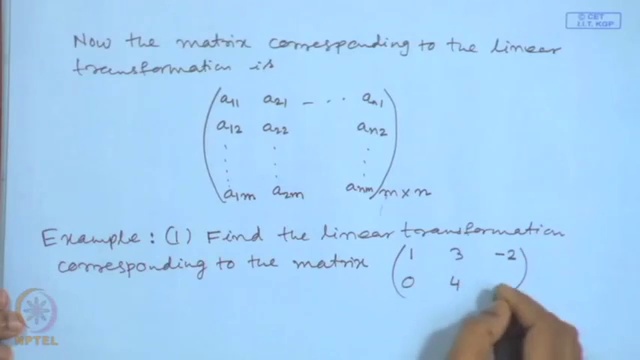 © CET
I.I.T. KGP
Now the matrix corresponding to the linear
transformation is
a11 a21 - ... an1
a12 a22 an2
⋮ ⋮ ⋮
a1m a2m anm m×n
Example: (1) Find the linear transformation
corresponding to the matrix ( 1 3 -2 )
( 0 4 )
NPTEL